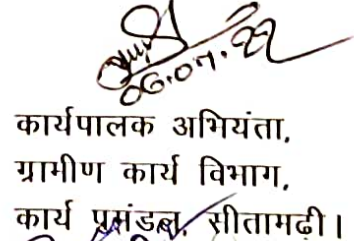 06.07.22
कार्यपालक अभियंता,
ग्रामीण कार्य विभाग,
कार्य प्रमंडल, सीतामढ़ी।